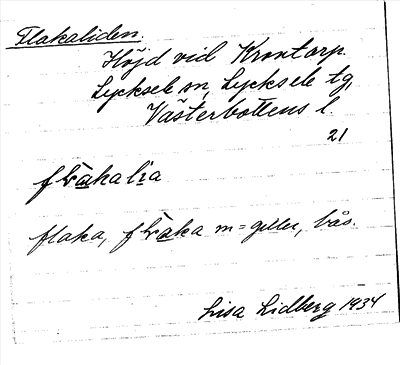 Flakaliden.
Höjd vid Krontorp.
Lycksele sn, Lycksele tg,
Västerbottens l.
21
flakalia
flaka, flaka m = giller, bås.
Lisa Lidberg 1934